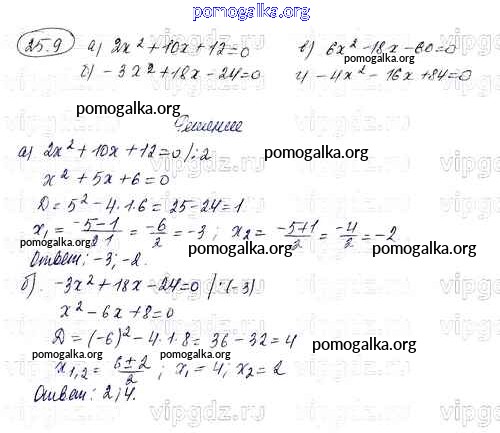 pomogalka.org
25.9 а) 2x² + 10x + 12 = 0 в) 6x² - 18x - 60 = 0
б) -3x² + 18x - 24 = 0 г) -4x² - 16x + 84 = 0
pomogalka.org pomogalka.org
Решение
а) 2x² + 10x + 12 = 0 /:2 pomogalka.org
x² + 5x + 6 = 0
D = 5² - 4·1·6 = 25 - 24 = 1 pomogalka.org
x₁ = -5-1/2·1 = -6/2 = -3; x₂ = -5+1/2 = -4/2 = -2
pomogalka.org pomogalka.org
Ответ: -3; -2.
б) -3x² + 18x - 24 = 0 /:(-3)
x² - 6x + 8 = 0
D = (-6)² - 4·1·8 = 36 - 32 = 4 pomogalka.org
pomogalka.org pomogalka.org
x₁,₂ = 6±2/2; x₁ = 4; x₂ = 2
Ответ: 2; 4.
vipgdz.ru